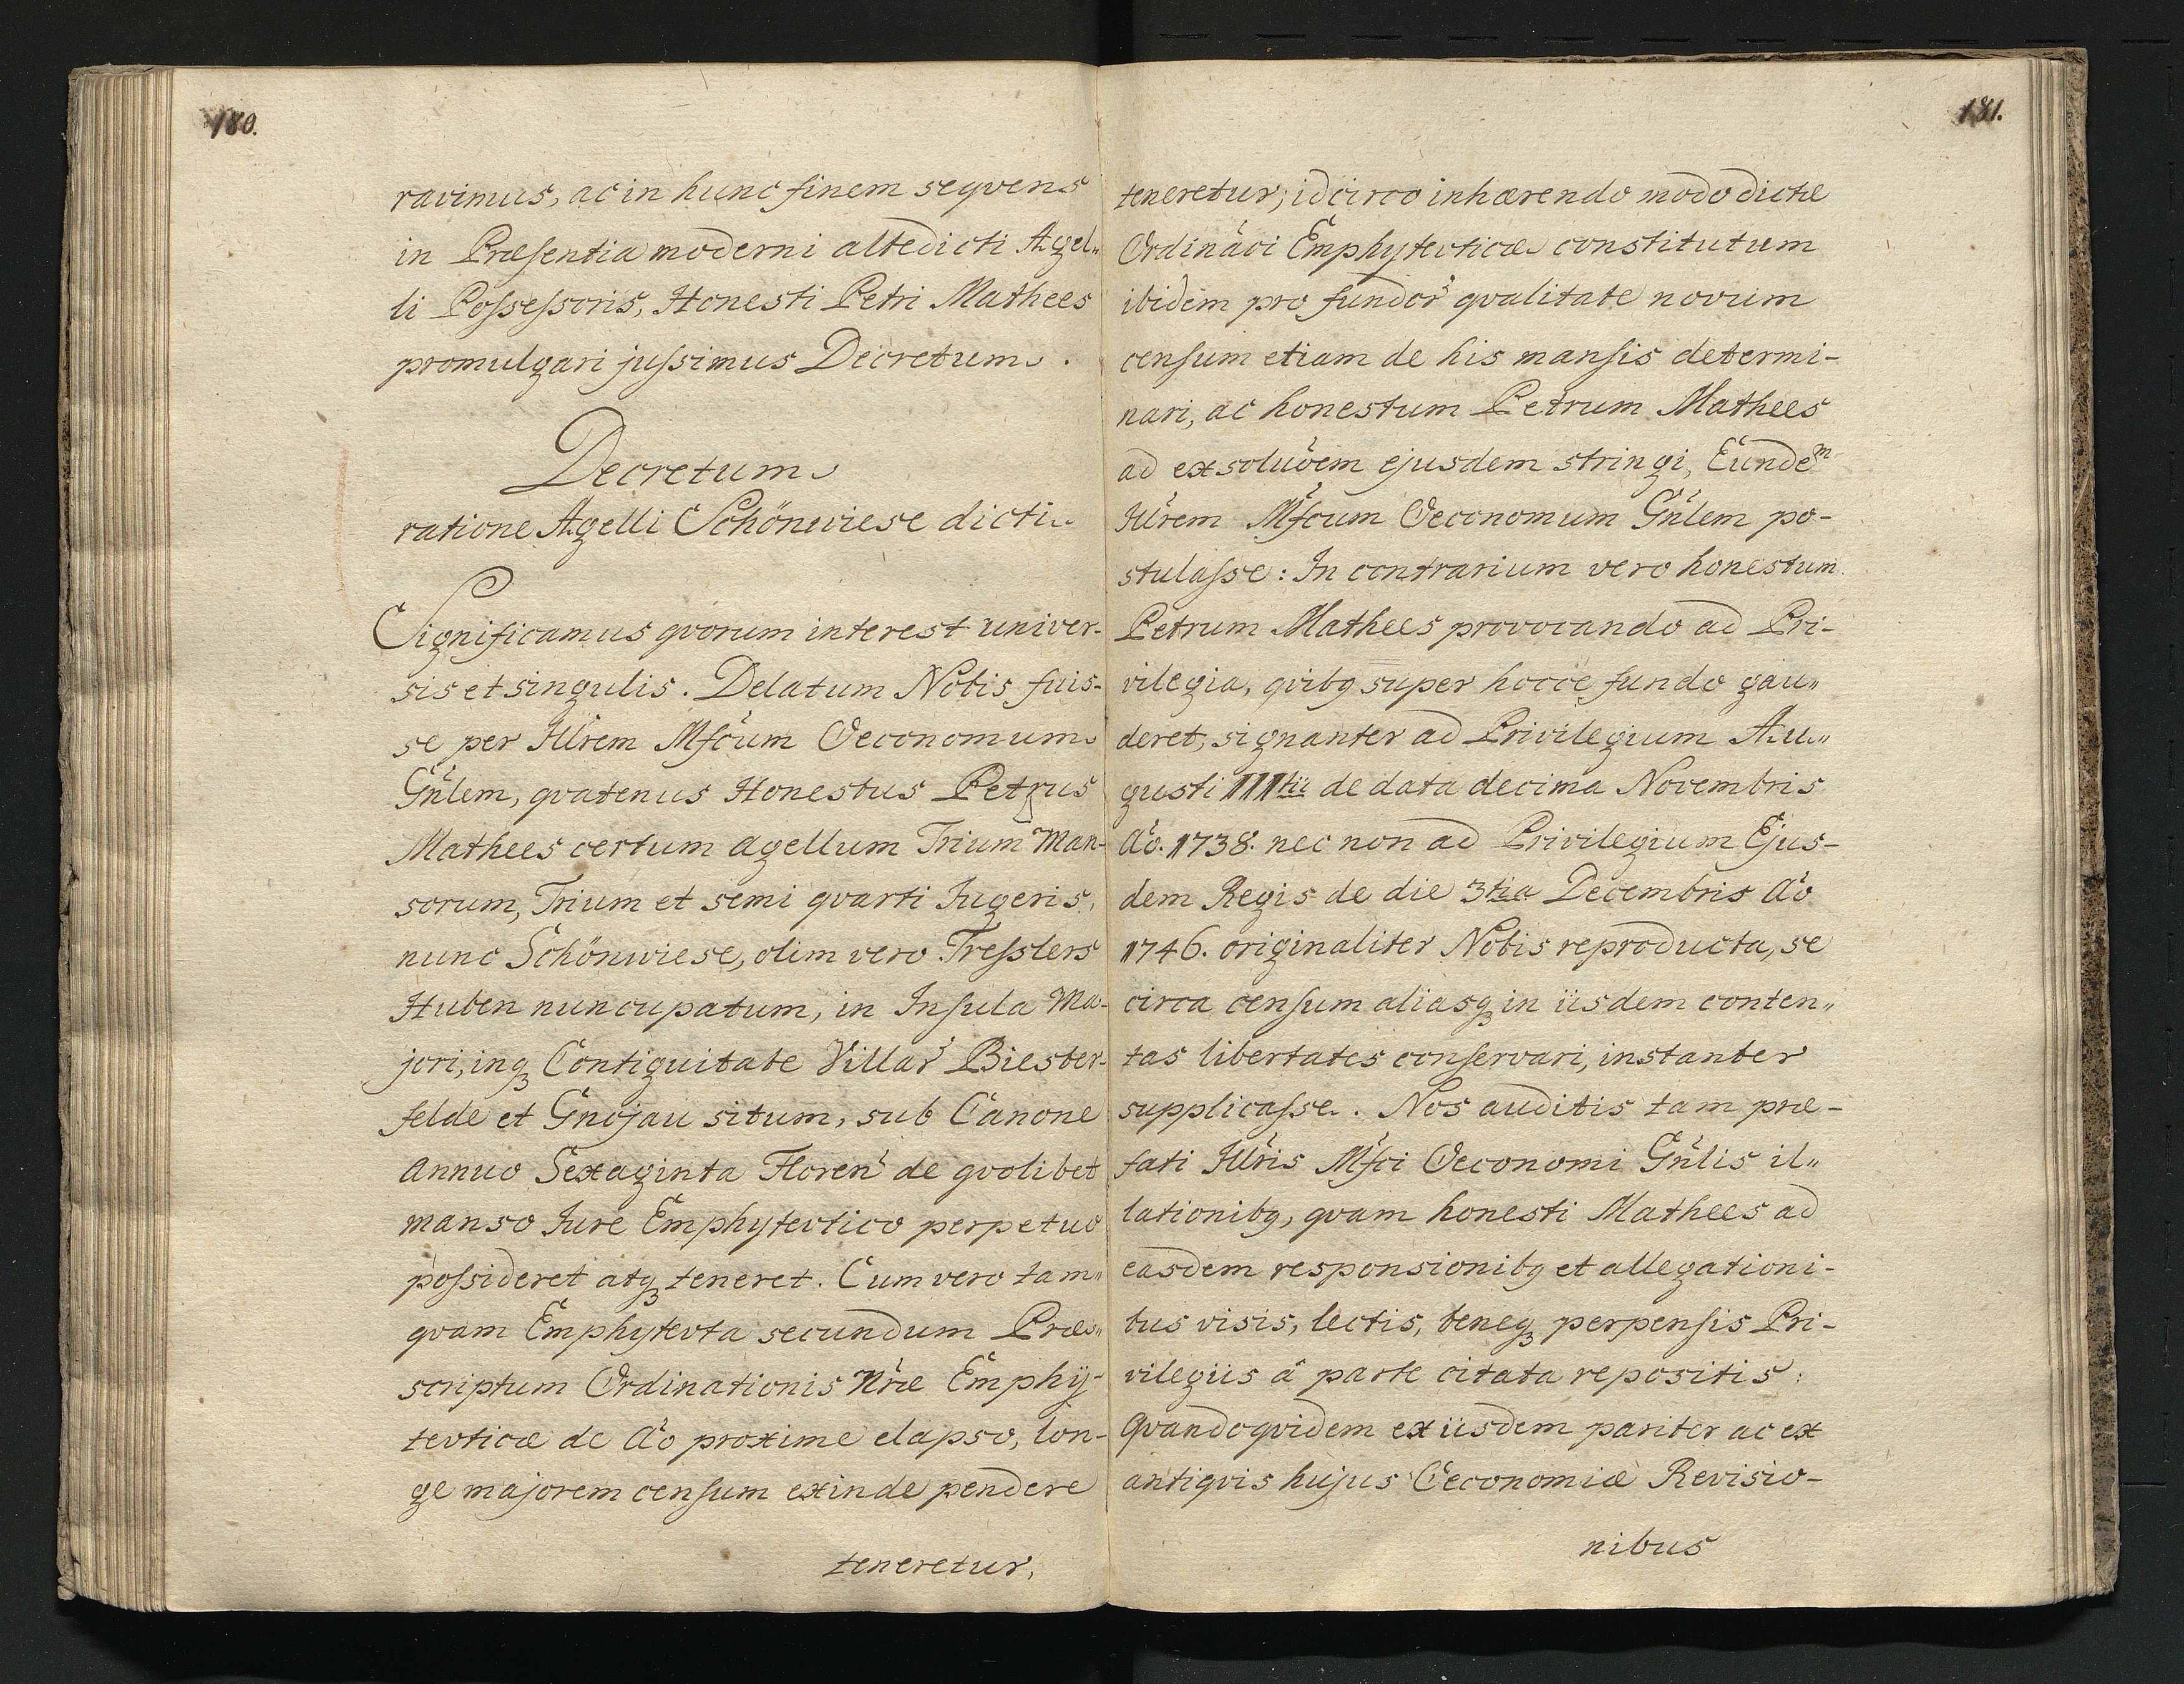 180.
ravimus, ac in hunc finem seqvens
in Præsentia moderni altedicti Agel„
li Possessoris, Honesti Petri Mathees
promulgari jussimus Decretum.
Decretum
ratione Agelli Schönwiese dicti.
Significamus qvorum interest univer-
sis et singulis. Delatum Nobis fuis-
se per Illrem Mfcum Oeconomum
Gnlem, qvatenus Honestus Petrus
Mathees certum agellum Trium Man-
sorum, Trium et semi qvarti Jugeris,
nunc Schönwiese, olim vero Tresslers
Huben nuncupatum, in Insula Ma-
jori, inq3 Contiguitate Villar Biester-
felde et Gnojau situm, sub Canone
annuo Sexaginta Floren de qvolibet
manso Jure Emphytevtico perpetuo
possideret atq3 teneret. Cum vero tam„
qvam Emphytevta secundum Præs„
scriptum Ordinationis Nræ Emphÿ-
tevticæ de Ao proxime elapso, lon-
ge majorem censum exinde pendere
teneretur,
181.
teneretur; idcirco inhærendo modo dictæ
Ordinaoi Emphytevticæ constitutum
ibidem pro fundor qvalitate novum
censum etiam de his mansis determi-
nari, ac honestum Petrum Mathees
ad exsoluoem ejusdem stringi, Eundem
Illrem Mfcum Oeconomum Gnlem po-
stulasse: In contrarium vero honestum
Petrum Mathees provocando ad Pri-
vilegia, qvibq super hocce fundo gau„
deret, signanter ad Privilegium Au„
gusti IIItii de data decima Novembris
Ao. 1738. nec non ad Privilegium Ejus-
dem Regis de die 3tia Decembris Ao
1746. originaliter Nobis reproducta, se
circa censum aliasq3 in iisdem conten„
tas libertates conservari, instanter
supplicasse. Nos auditis tam præ-
fati Illris Mfci Oeconomi Gnlis il„
lationibq, qvam honesti Mathees ad
easdem responsionibq et allegationi-
bus visis, lectis, beneq3 perpensis Pri-
vilegiis â parte citata repositis:
Qvandoqvidem ex iisdem pariter ac ex
antiqvis hujus Oeconomiæ Revisio-
nibus